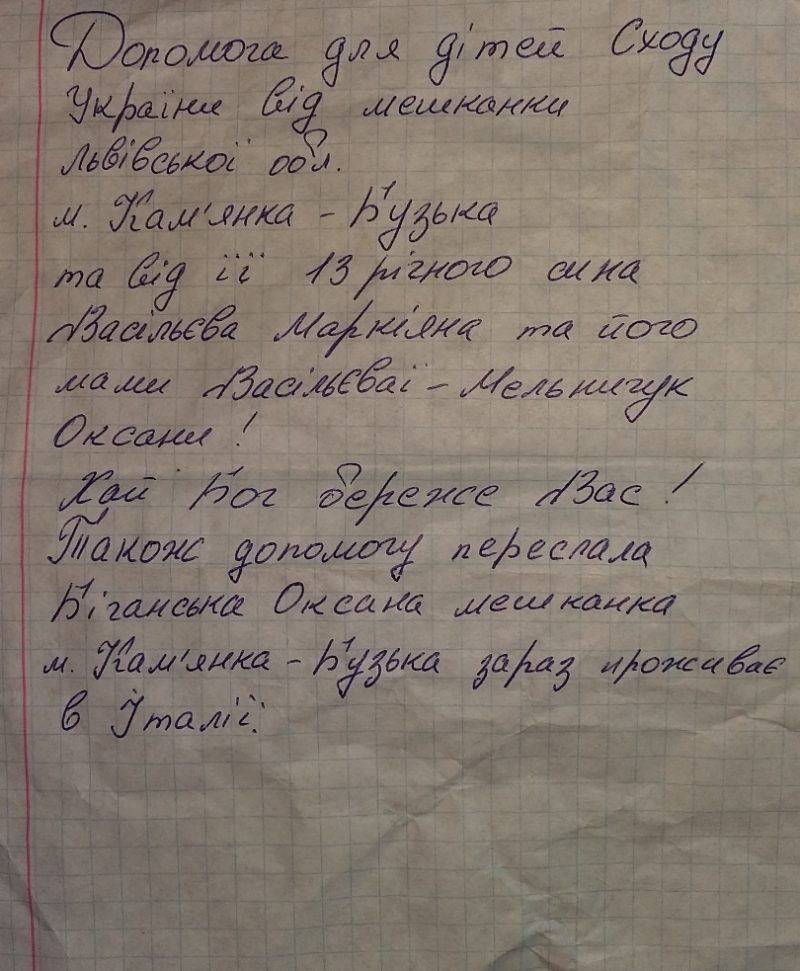 Допомога для дітей Сходу
України від мешканки
Львівської обл.
м. Кам'янка - Бузька
та від її 13 річного сина
Васільєва Маркіяна та його
мами Васільєваї - Мельничук
Оксани!
Хай Бог береже Вас!
Також допомогу переслала
Біганська Оксана мешканка
м. Кам'янка - Бузька зараз проживає
в Італії.